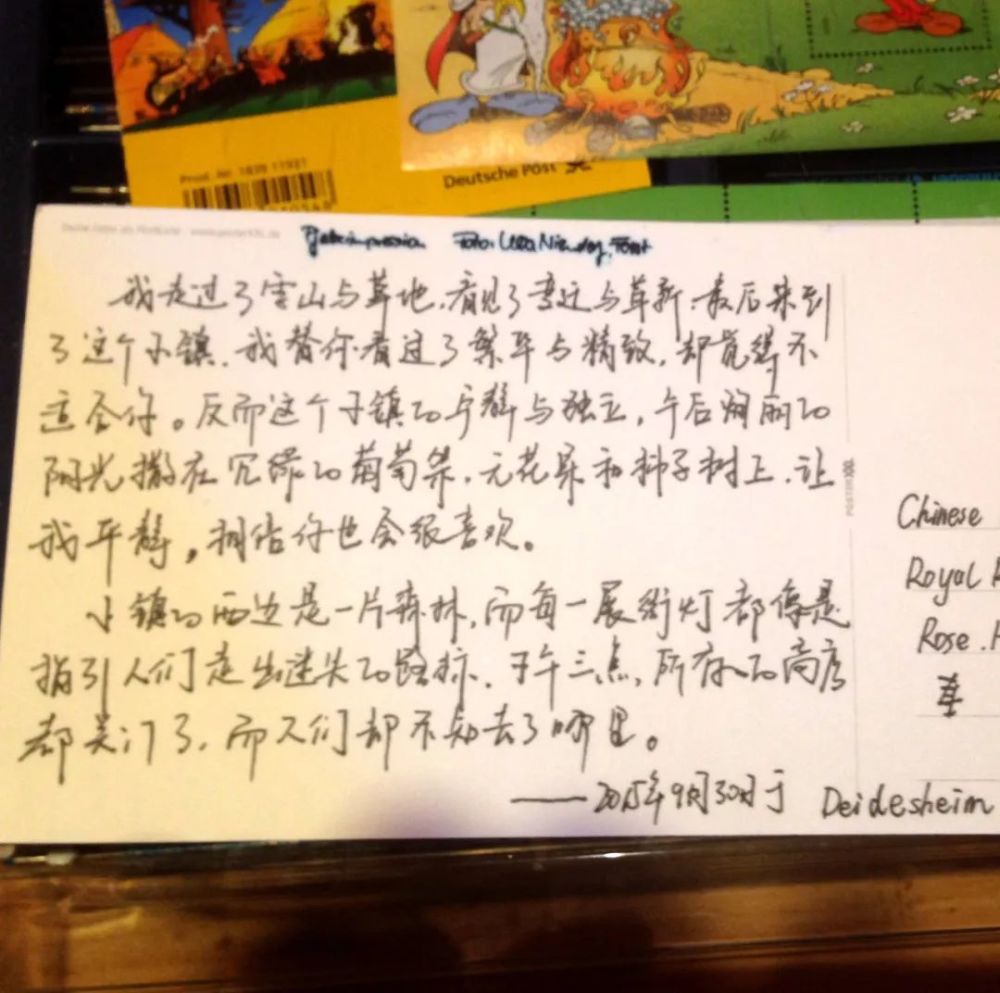 Prod. Nr. 1839 11931
Deutsche Post
Foto:
我走过了雪山与草地,看见了变迁与革新,最后来到
了这个小镇,我替你看过了繁华与精致,却觉得不
适合你。反而这个小镇的宁静与独立,午后绚丽的
阳光撒在冗绿的葡萄架,无花果和柿子树上,让
我平静。相信你也会很喜欢。
小镇的西边是一片森林,而每一展街灯都像是
指引人们走出迷失的路标,下午三点,所有的商店
都关门了,而人们却不知去了哪里。
——2015年9月30日于 Deidesheim
POSTERXXL
Chinese
Royal
Rose.